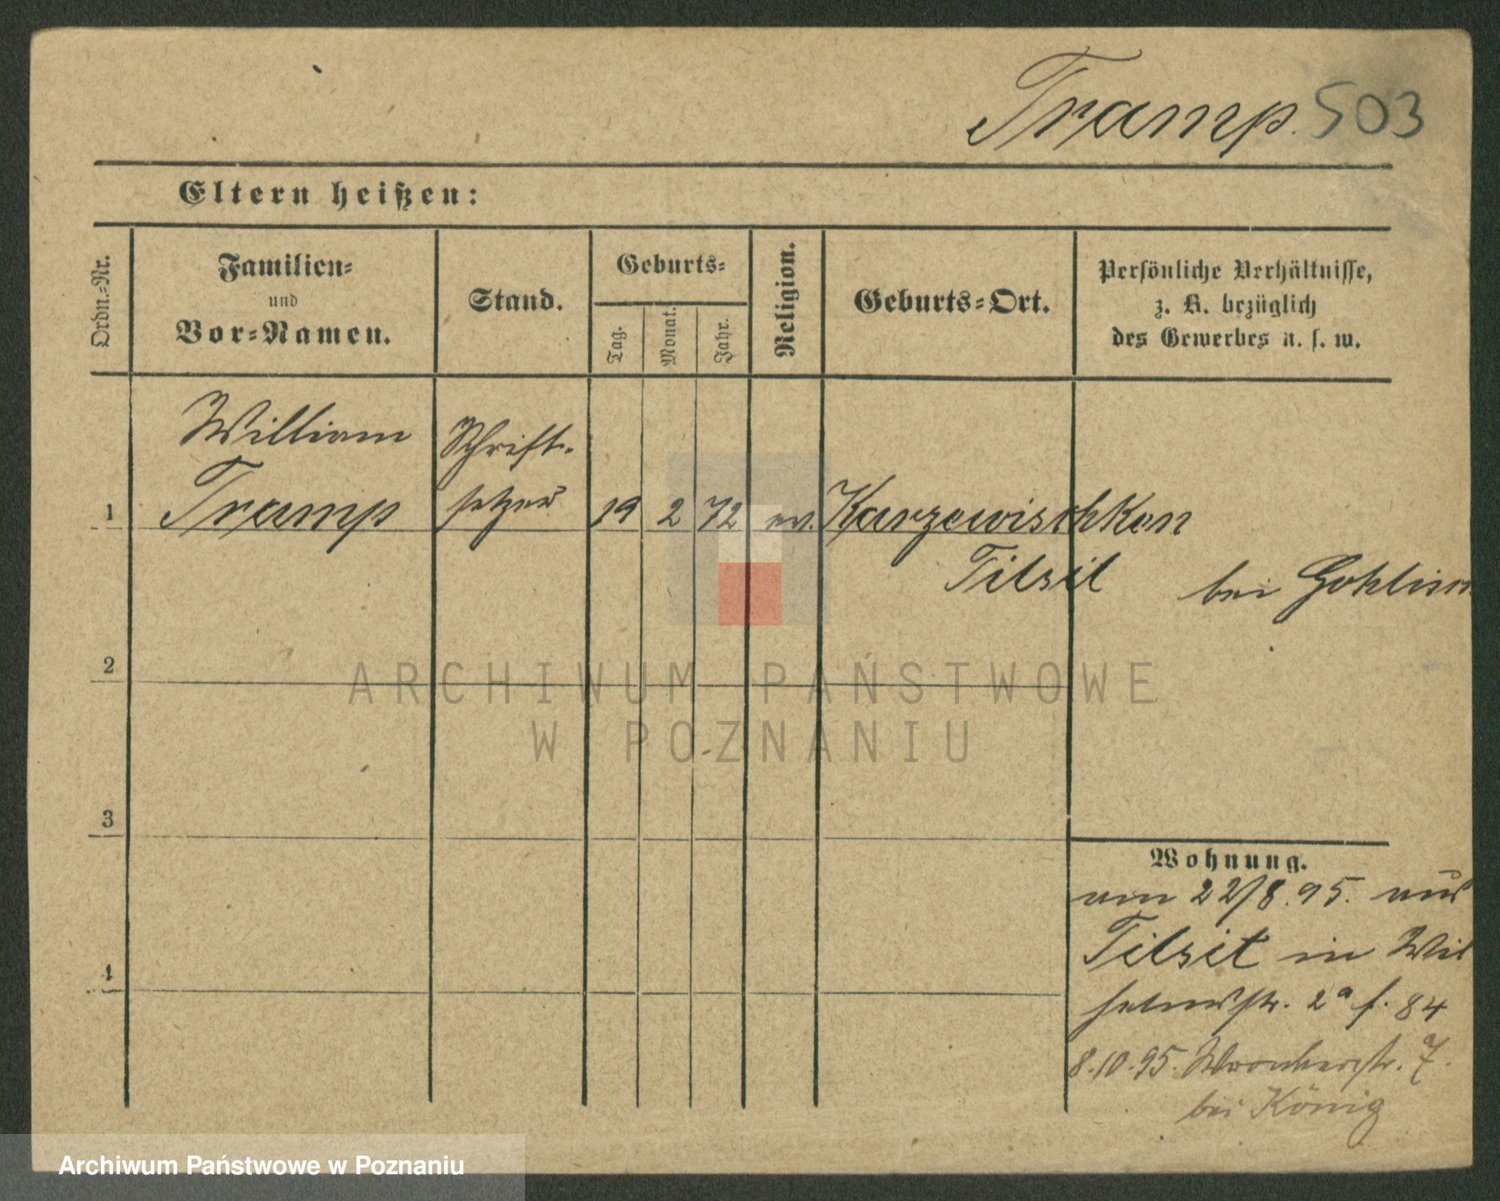 Tramp. 503
Eltern heißen:
Ordn.-Nr.
Familien-
und
Vor-Namen.
Stand.
Geburts-
Tag.
Monat.
Jahr.
Religion.
Geburts-Ort.
Persönliche Verhältnisse,
z. B. bezüglich
des Gewerbes u. s. w.
William
Schrift-
1 Tramp setzer 19 2 72 ev. Karzewischken
Tilsit bei
2
ARCHIWUM PAŃSTWOWE
W POZNANIU
3
Wohnung.
am 22/8.95. aus
Tilsit in Wil
helmstr. 2a f. 84
4
8.10.95. Wronkerstr. 7.
bei König
Archiwum Państwowe w Poznaniu